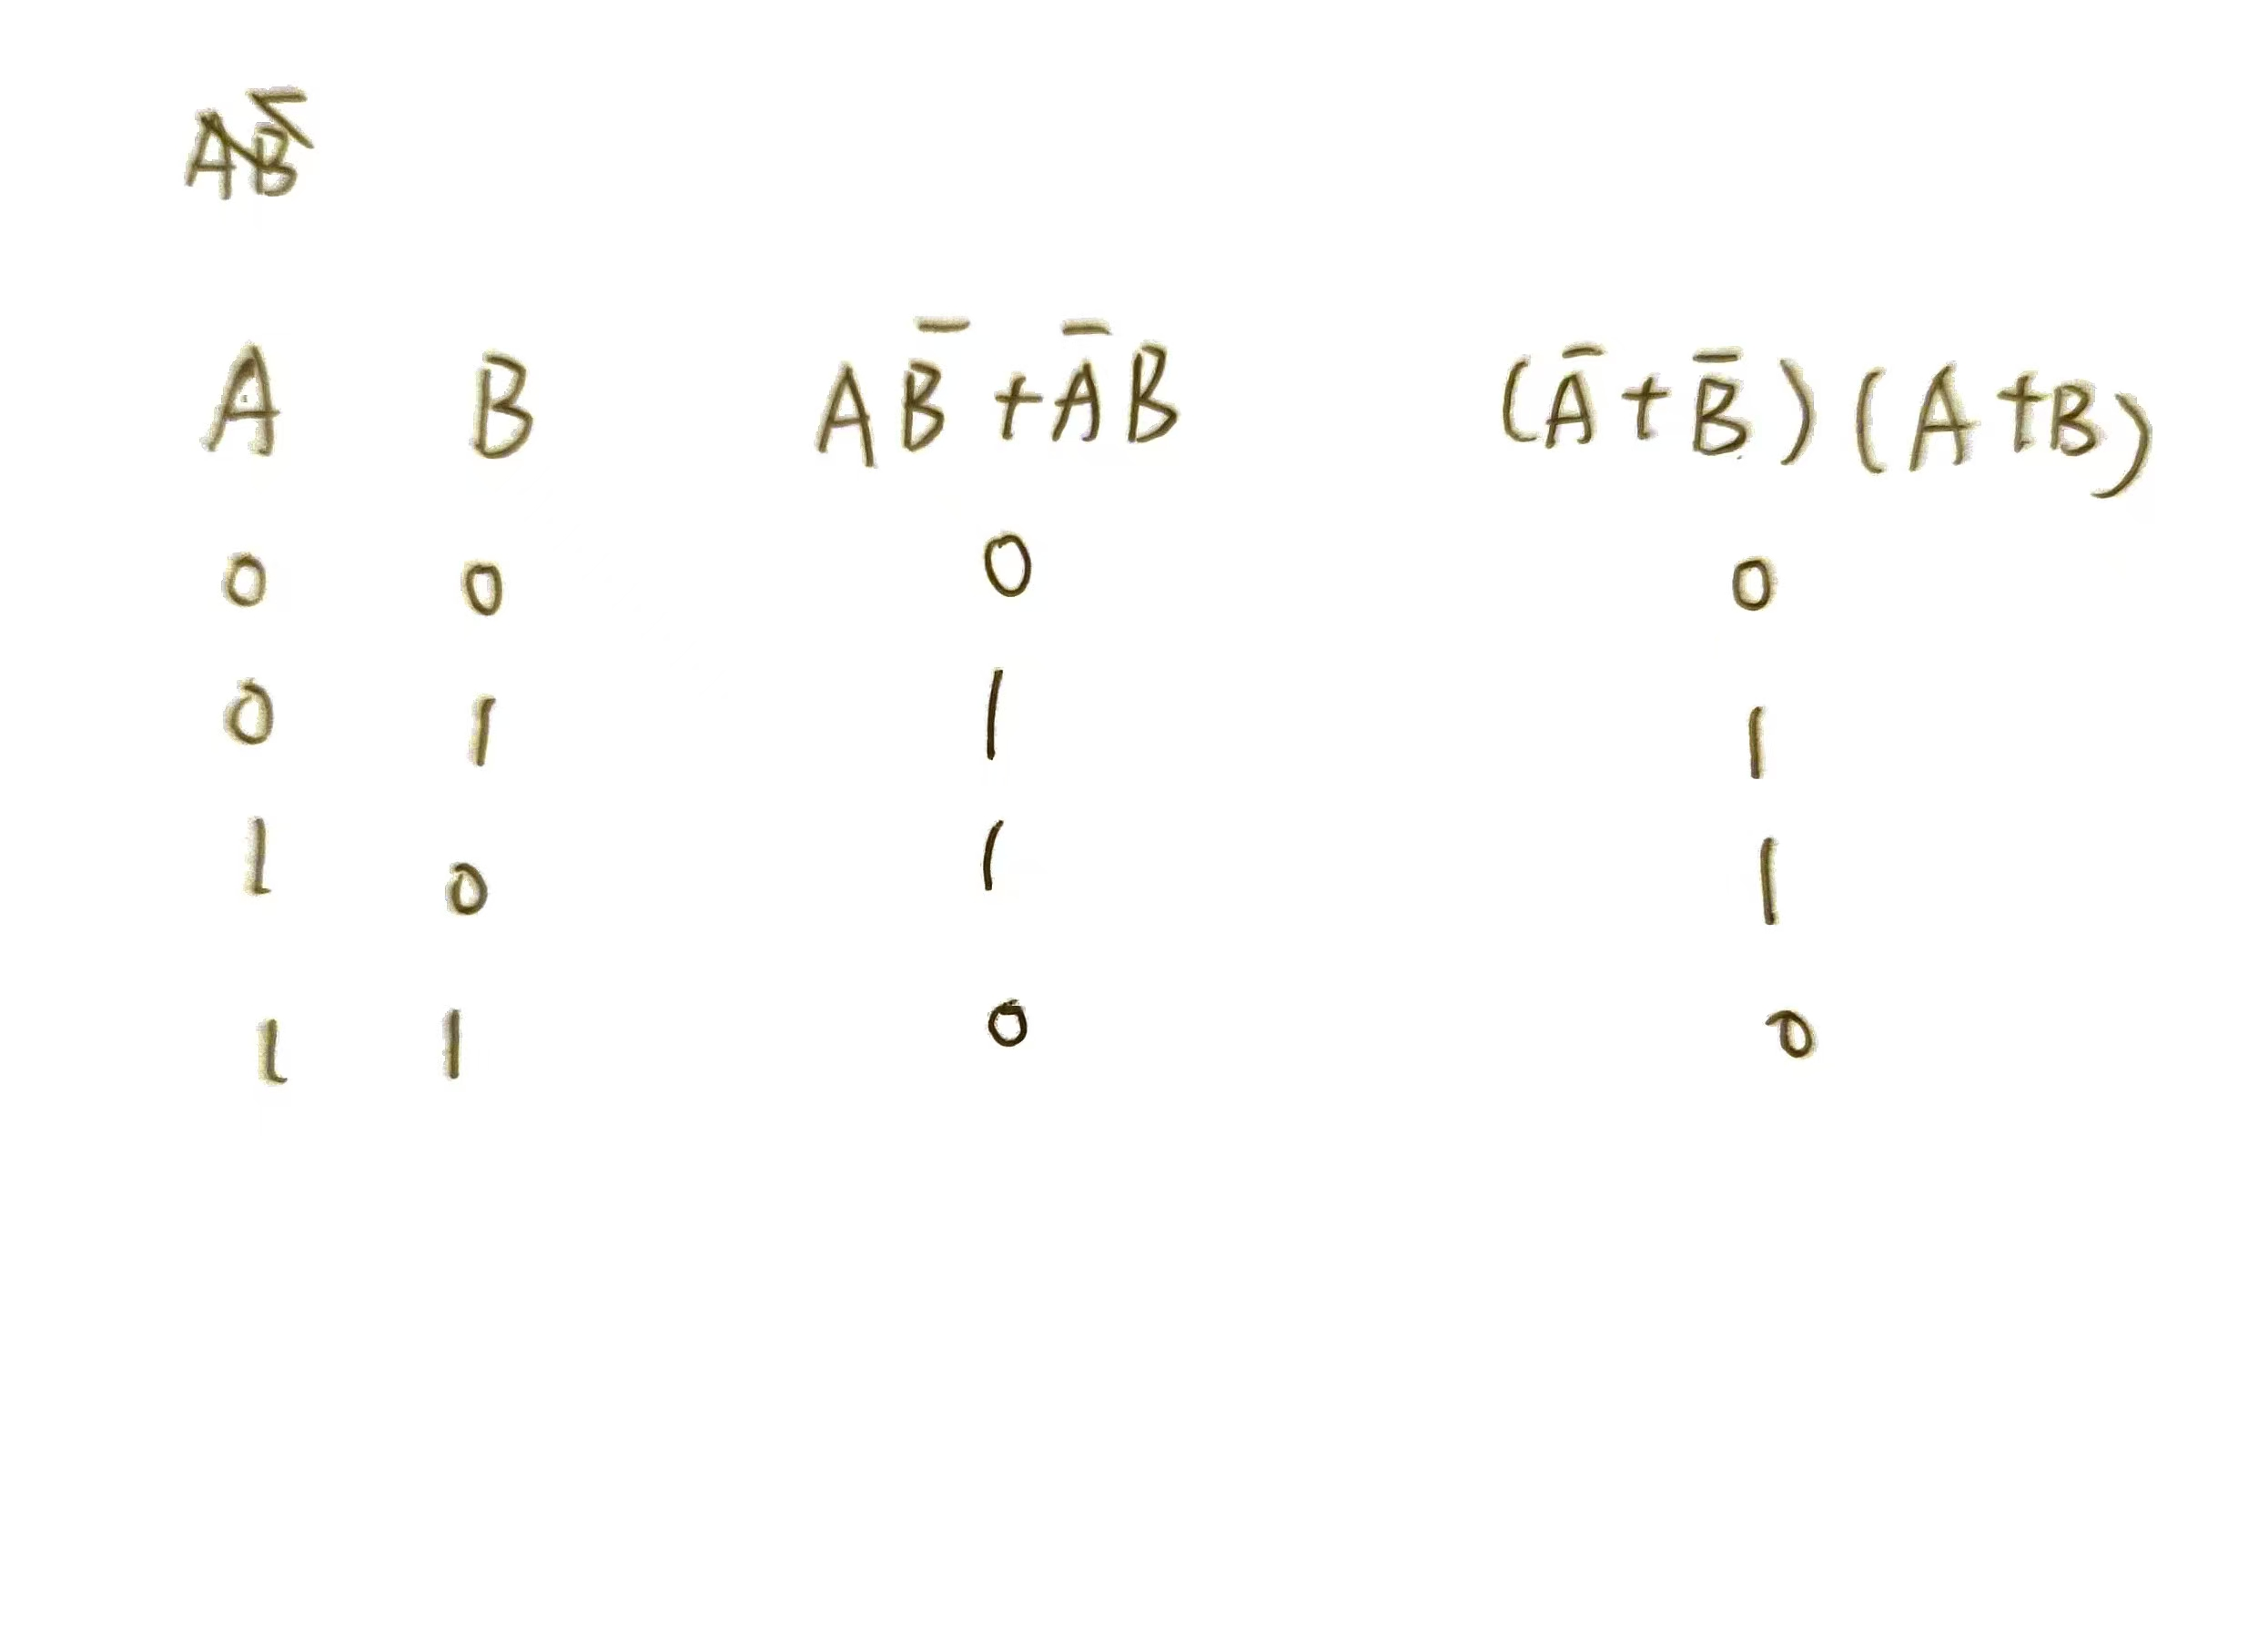 AB̅
A B AB̅ + A̅B (A̅ + B̅)(A + B)
0 0 0 0
0 1 1 1
1 0 1 1
1 1 0 0